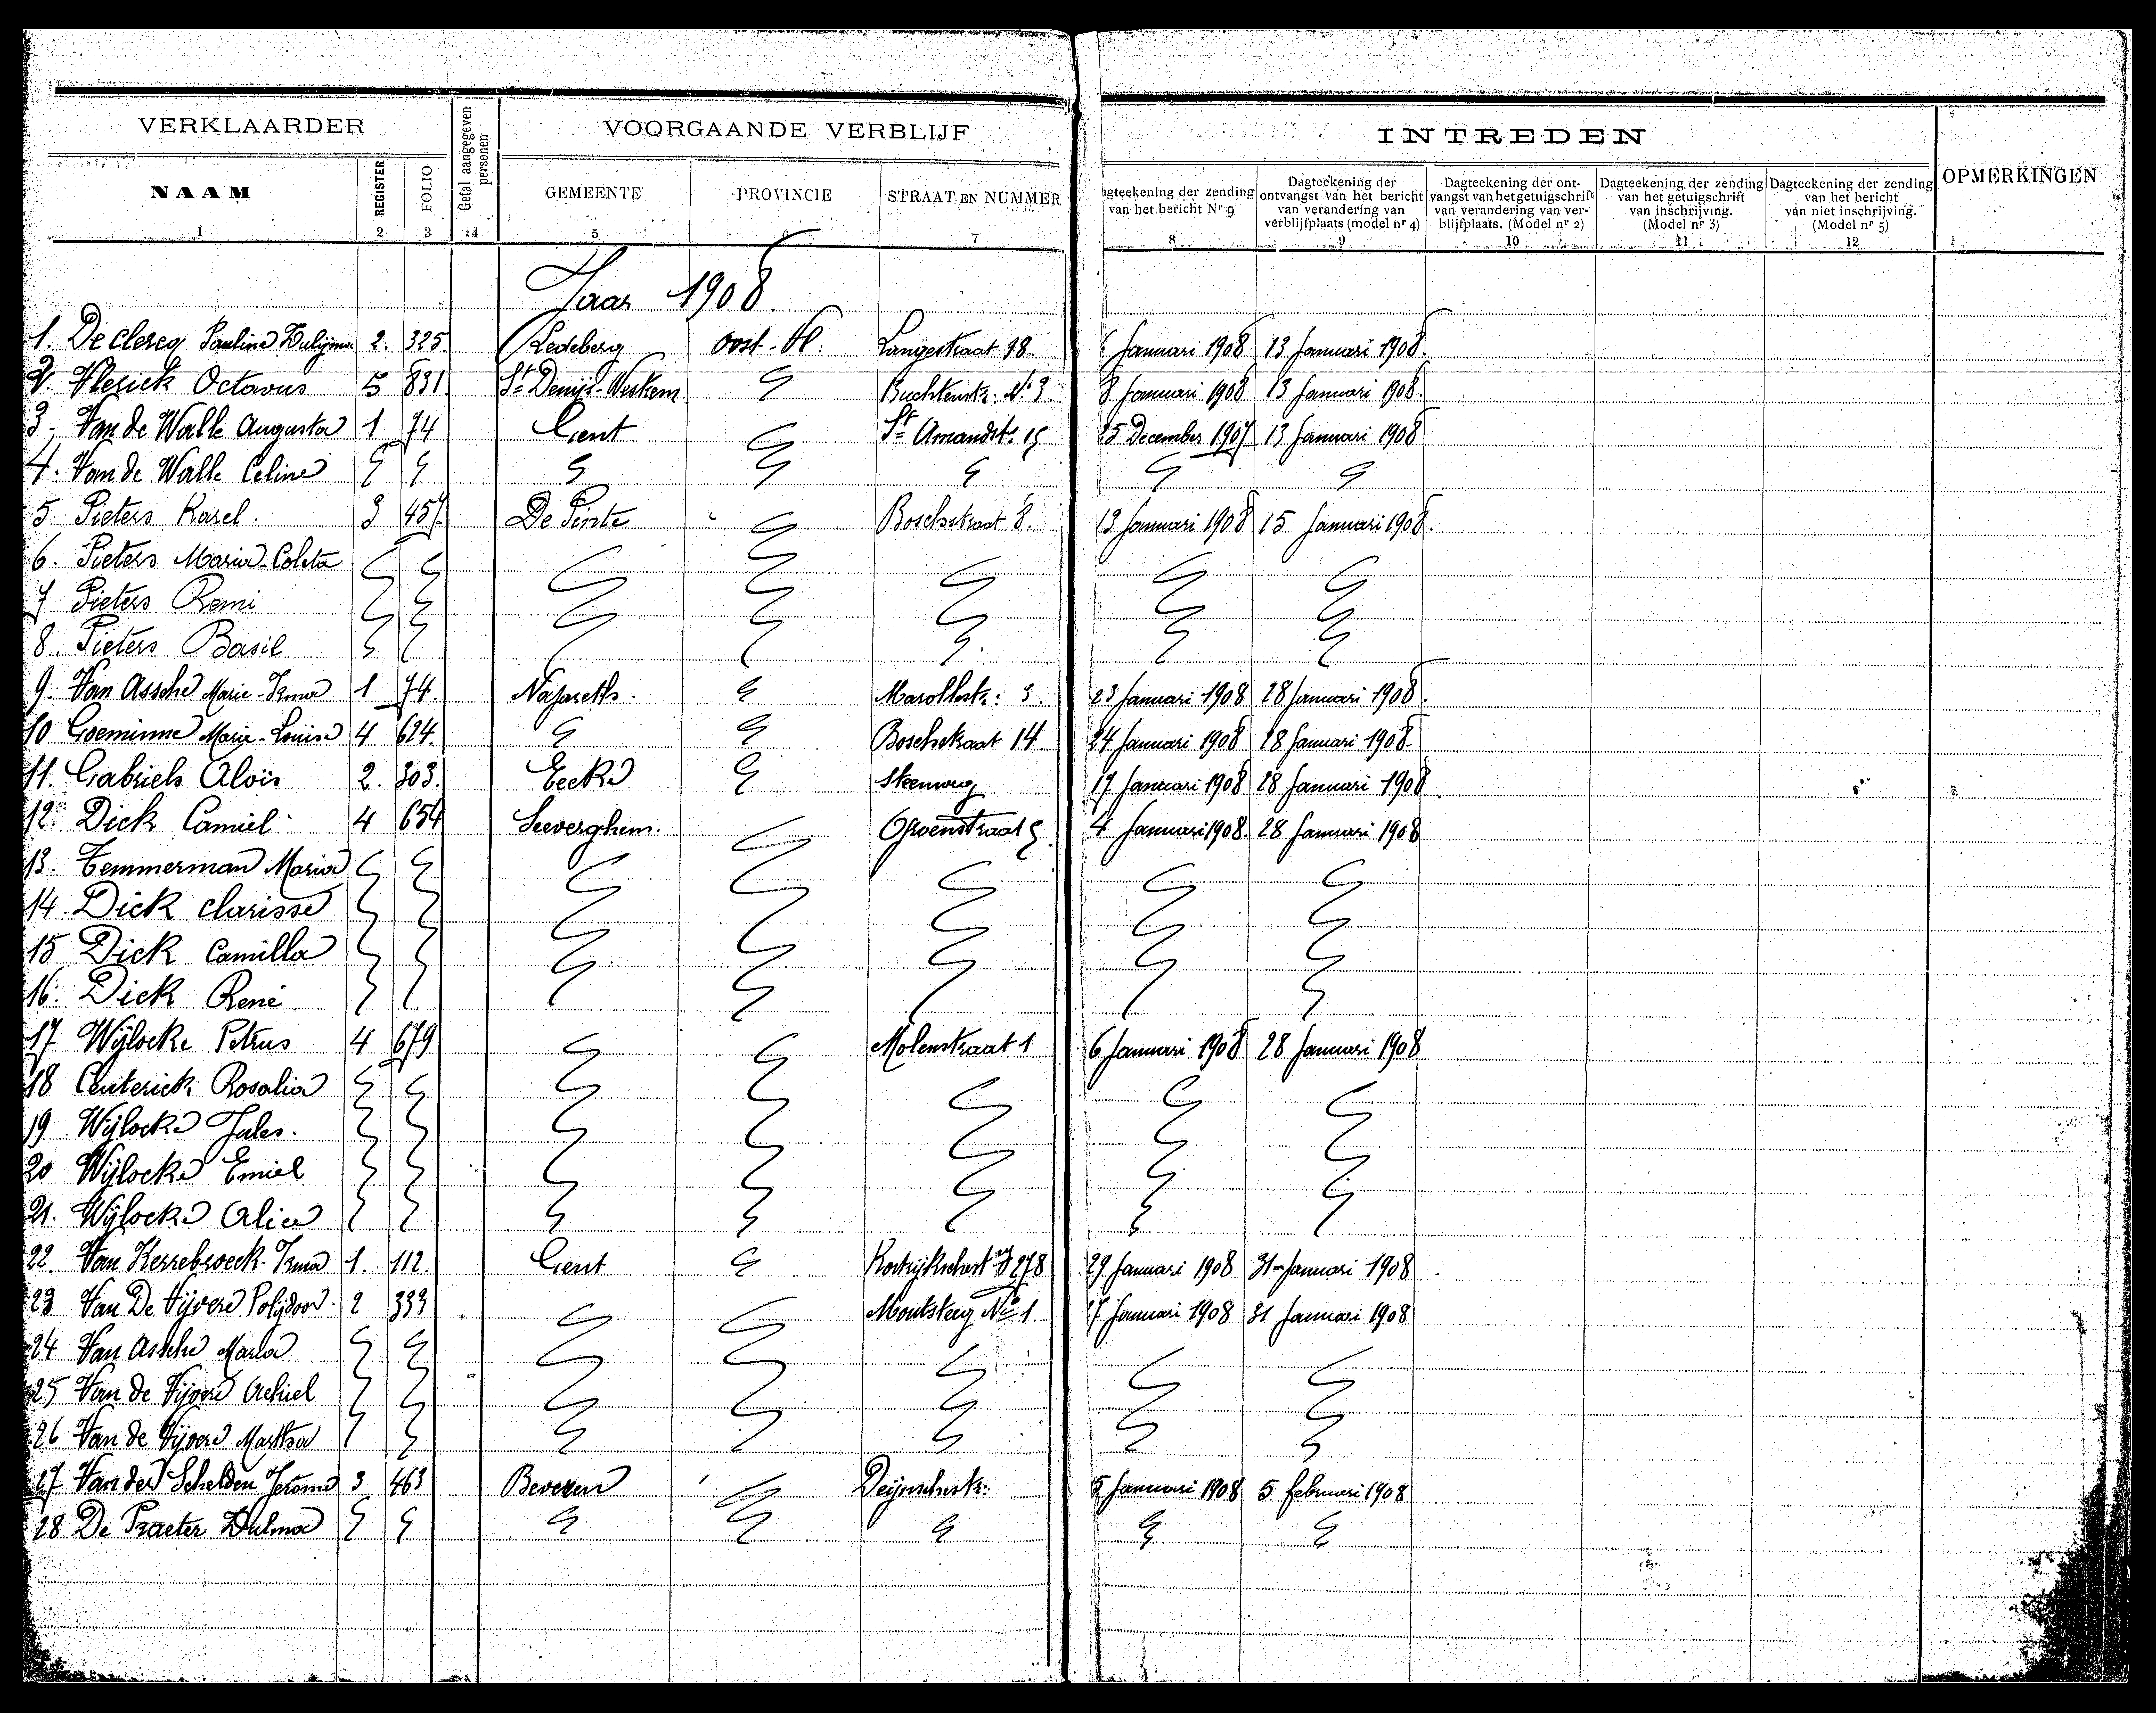 VERKLAARDER
Getal aangegeven personen
VOORGAANDE VERBLIJF
INTREDEN
OPMERKINGEN
NAAM REGISTER FOLIO GEMEENTE PROVINCIE STRAAT EN NUMMER
agteekening der zending van het bericht Nr 9
Dagteekening der ontvangst van het bericht van verandering van verblijfplaats (model nr 4)
Dagteekening der ont- vangst van het getuigschrift van verandering van ver- blijfplaats. (Model nr 2)
Dagteekening der zending van het getuigschrift van inschrijving. (Model nr 3)
Dagteekening der zending van het bericht van niet inschrijving. (Model nr 5)
1 2 3 4 5 6 7 8 9 10 11 12
Jaar 1908.
1. De Clercq Paulina 2. 325. Ledeberg Oost-Vl: Langestraat 98. Januari 1908 13 Januari 1908
2. Vlerick Octavus 5 831 St Denijs-Westrem Buchtenstr: No 3. 8 Januari 1908 13 Januari 1908.
3. Van de Walle Augusta 1 74 Gent St Amandstr 15 25 December 1907 13 Januari 1908
4. Van de Walle Celine
5. Pieters Karel. 3 457. De Pinte Boschstraat 8. 13 Januari 1908 15 Januari 1908.
6. Pieters Maria-Coleta
7 Pieters Remi
8. Pieters Basil
9. Van Assche Marie-Irma 1 74. Nazareth. Marollestr: 3. 23 Januari 1908 28 Januari 1908.
10 Goeminne Marie-Louise 4 624. Boschstraat 14. 24 Januari 1908 28 Januari 1908.
11. Gabriels Aloïs 2. 303. Eecke Steenweg 17 Januari 1908 28 Januari 1908
12. Dick Camiel 4 654 Seeverghem. Groenstraat 5. 4 Januari 1908. 28 Januari 1908
13. Temmerman Maria
14. Dick Clarisse
15 Dick Camilla
16. Dick René
17 Wijlocke Petrus 4 679 Molenstraat 1 6 Januari 1908 28 Januari 1908
18 Ceuterick Rosalia
19 Wijlocke Jules.
20 Wijlocke Emiel
21. Wijlocke Alice
22. Van Kerrebroeck Irma 1. 112. Gent 278 29 Januari 1908 31 Januari 1908
23 Van De Vijvere Polijdoor. 2 333 Moutsteeg No 1. 27 Januari 1908 31 Januari 1908
24 Van Assche Maria
25 Van de Vijvere Achiel
26 Van de Vijvere Martha
27 Van der Schelden Jerome 3 463 Beveren Deijnschestr: Januari 1908 5 februari 1908
28 De Praeter Zulma